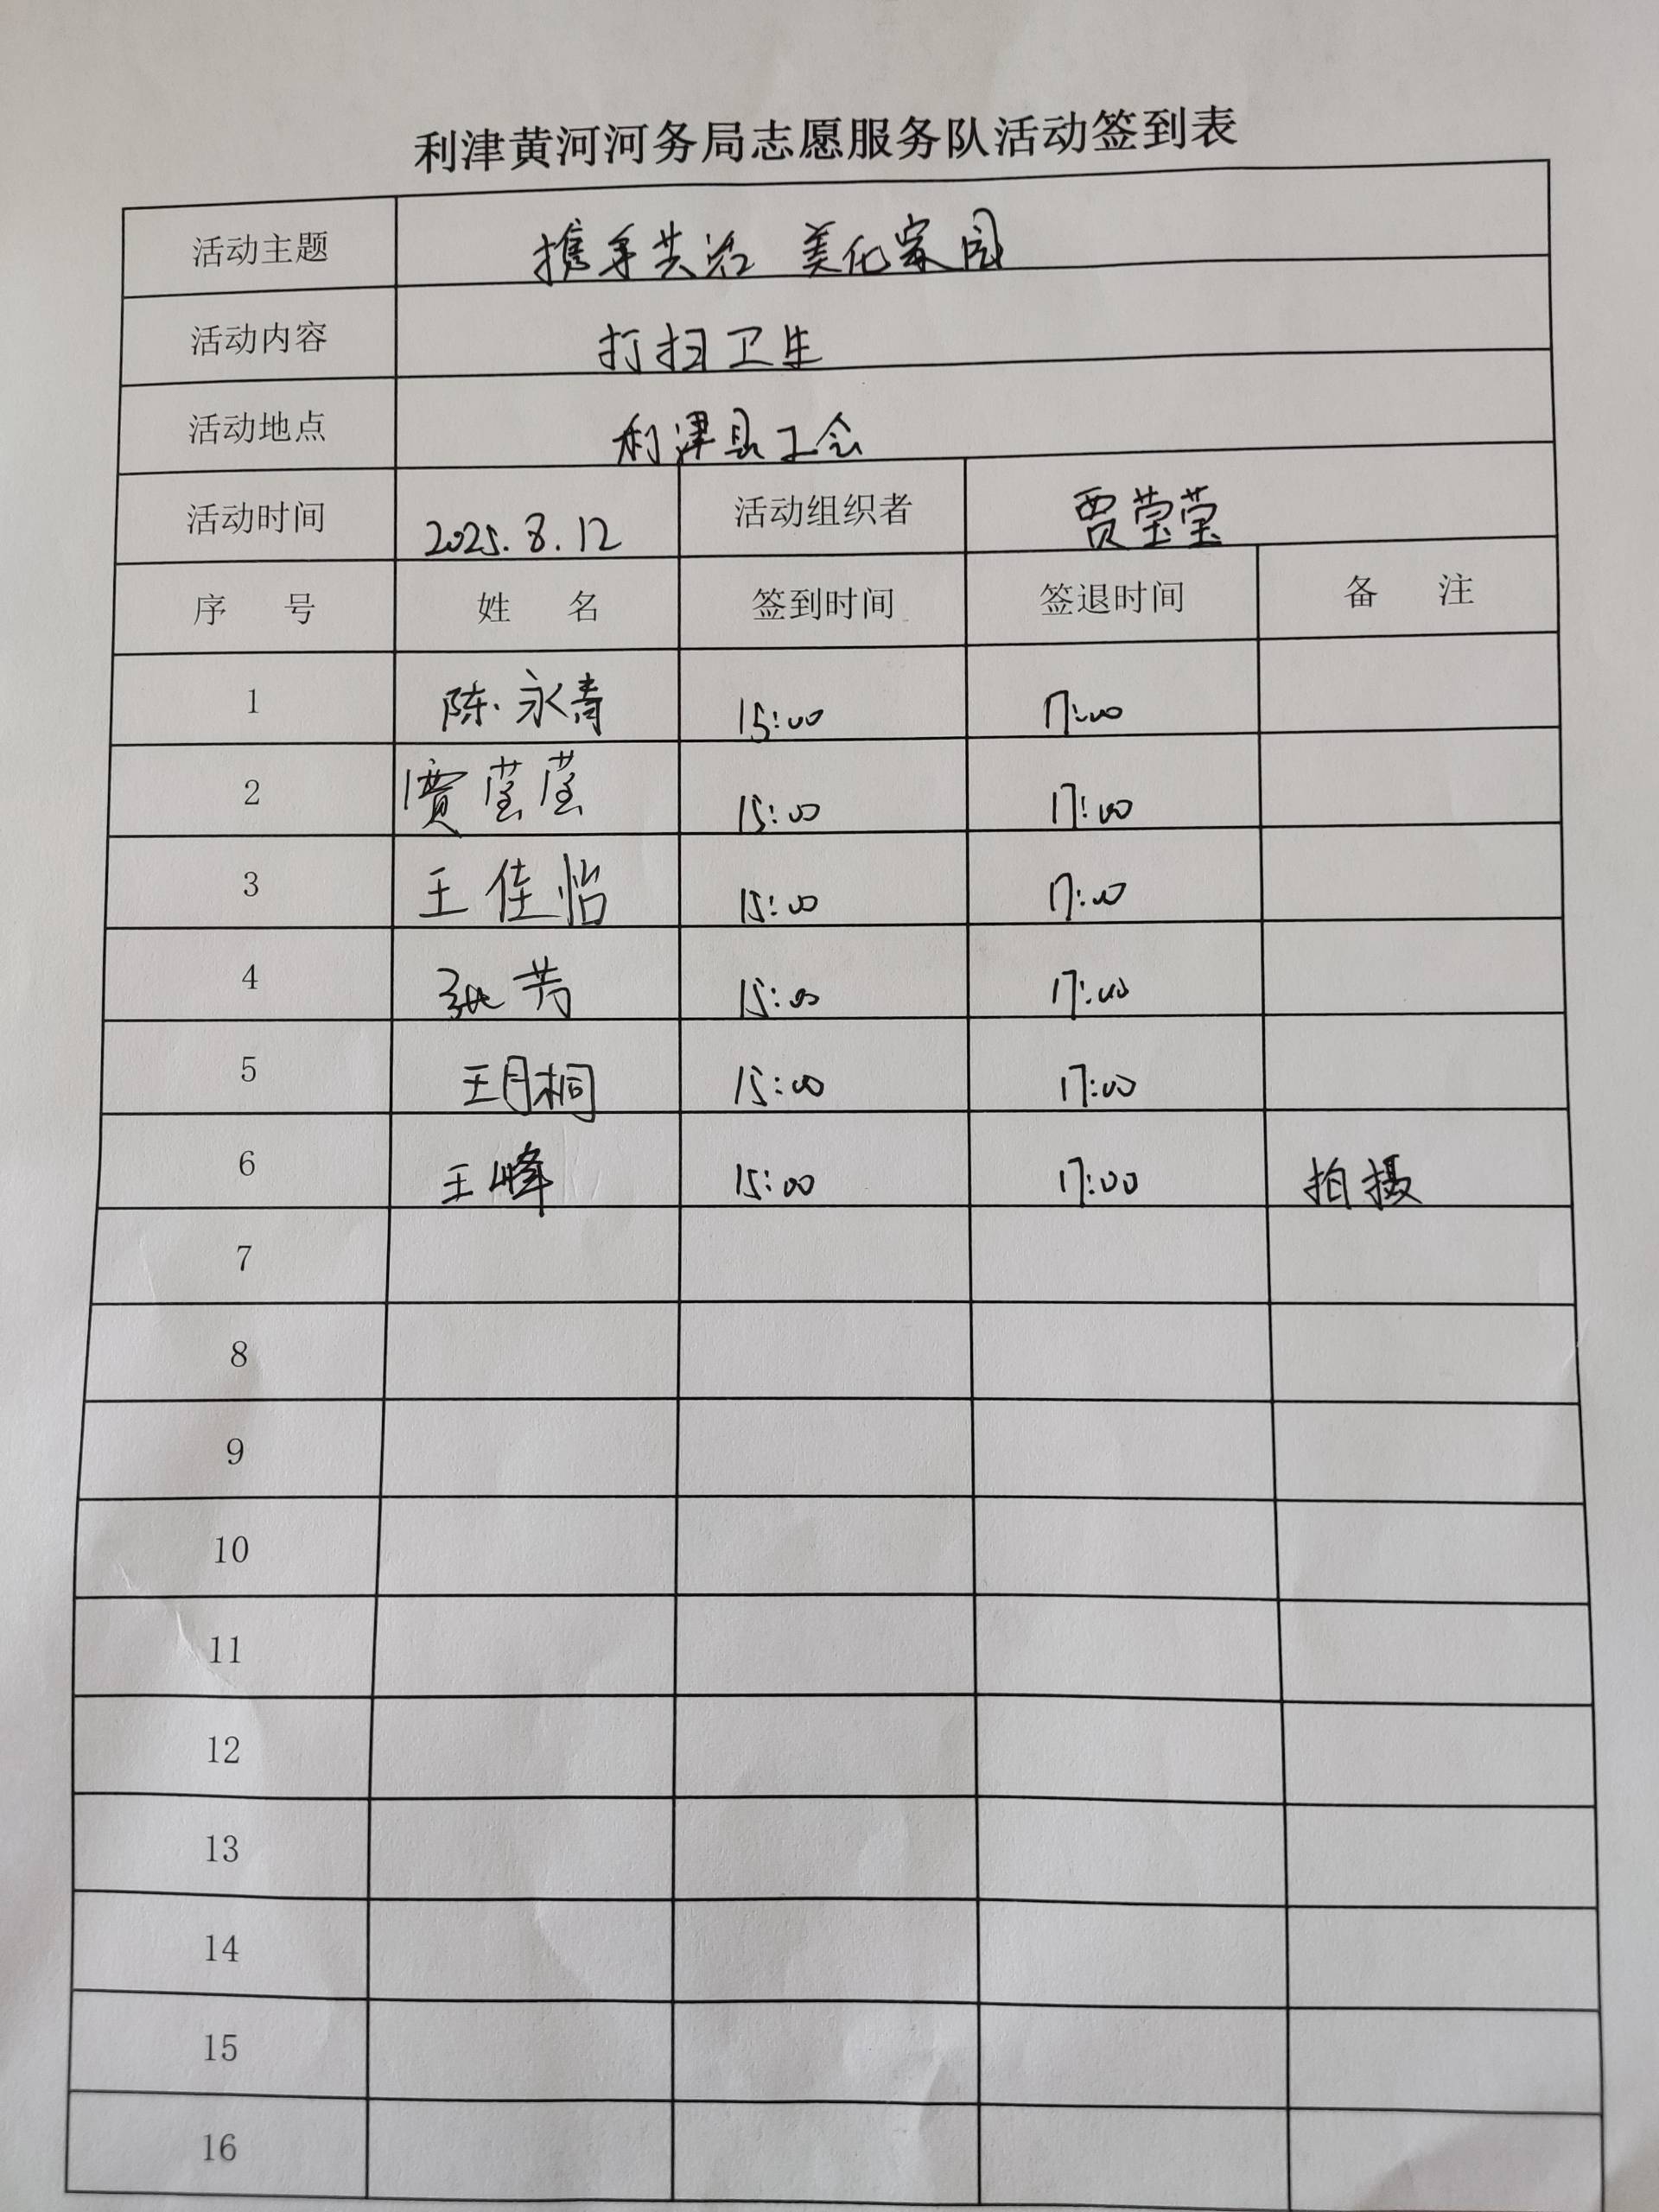 利津黄河河务局志愿服务队活动签到表
活动主题 携手共治 美化家园
活动内容 打扫卫生
活动地点 利津县工会
活动时间 2025.8.12 活动组织者 贾莹莹
序 号 姓 名 签到时间 签退时间 备 注
1 陈永青 15:00 17:00
2 贾莹莹 15:00 17:00
3 王佳怡 15:00 17:00
4 张芳 15:00 17:00
5 王月桐 15:00 17:00
6 王峰 15:00 17:00 拍摄
7
8
9
10
11
12
13
14
15
16